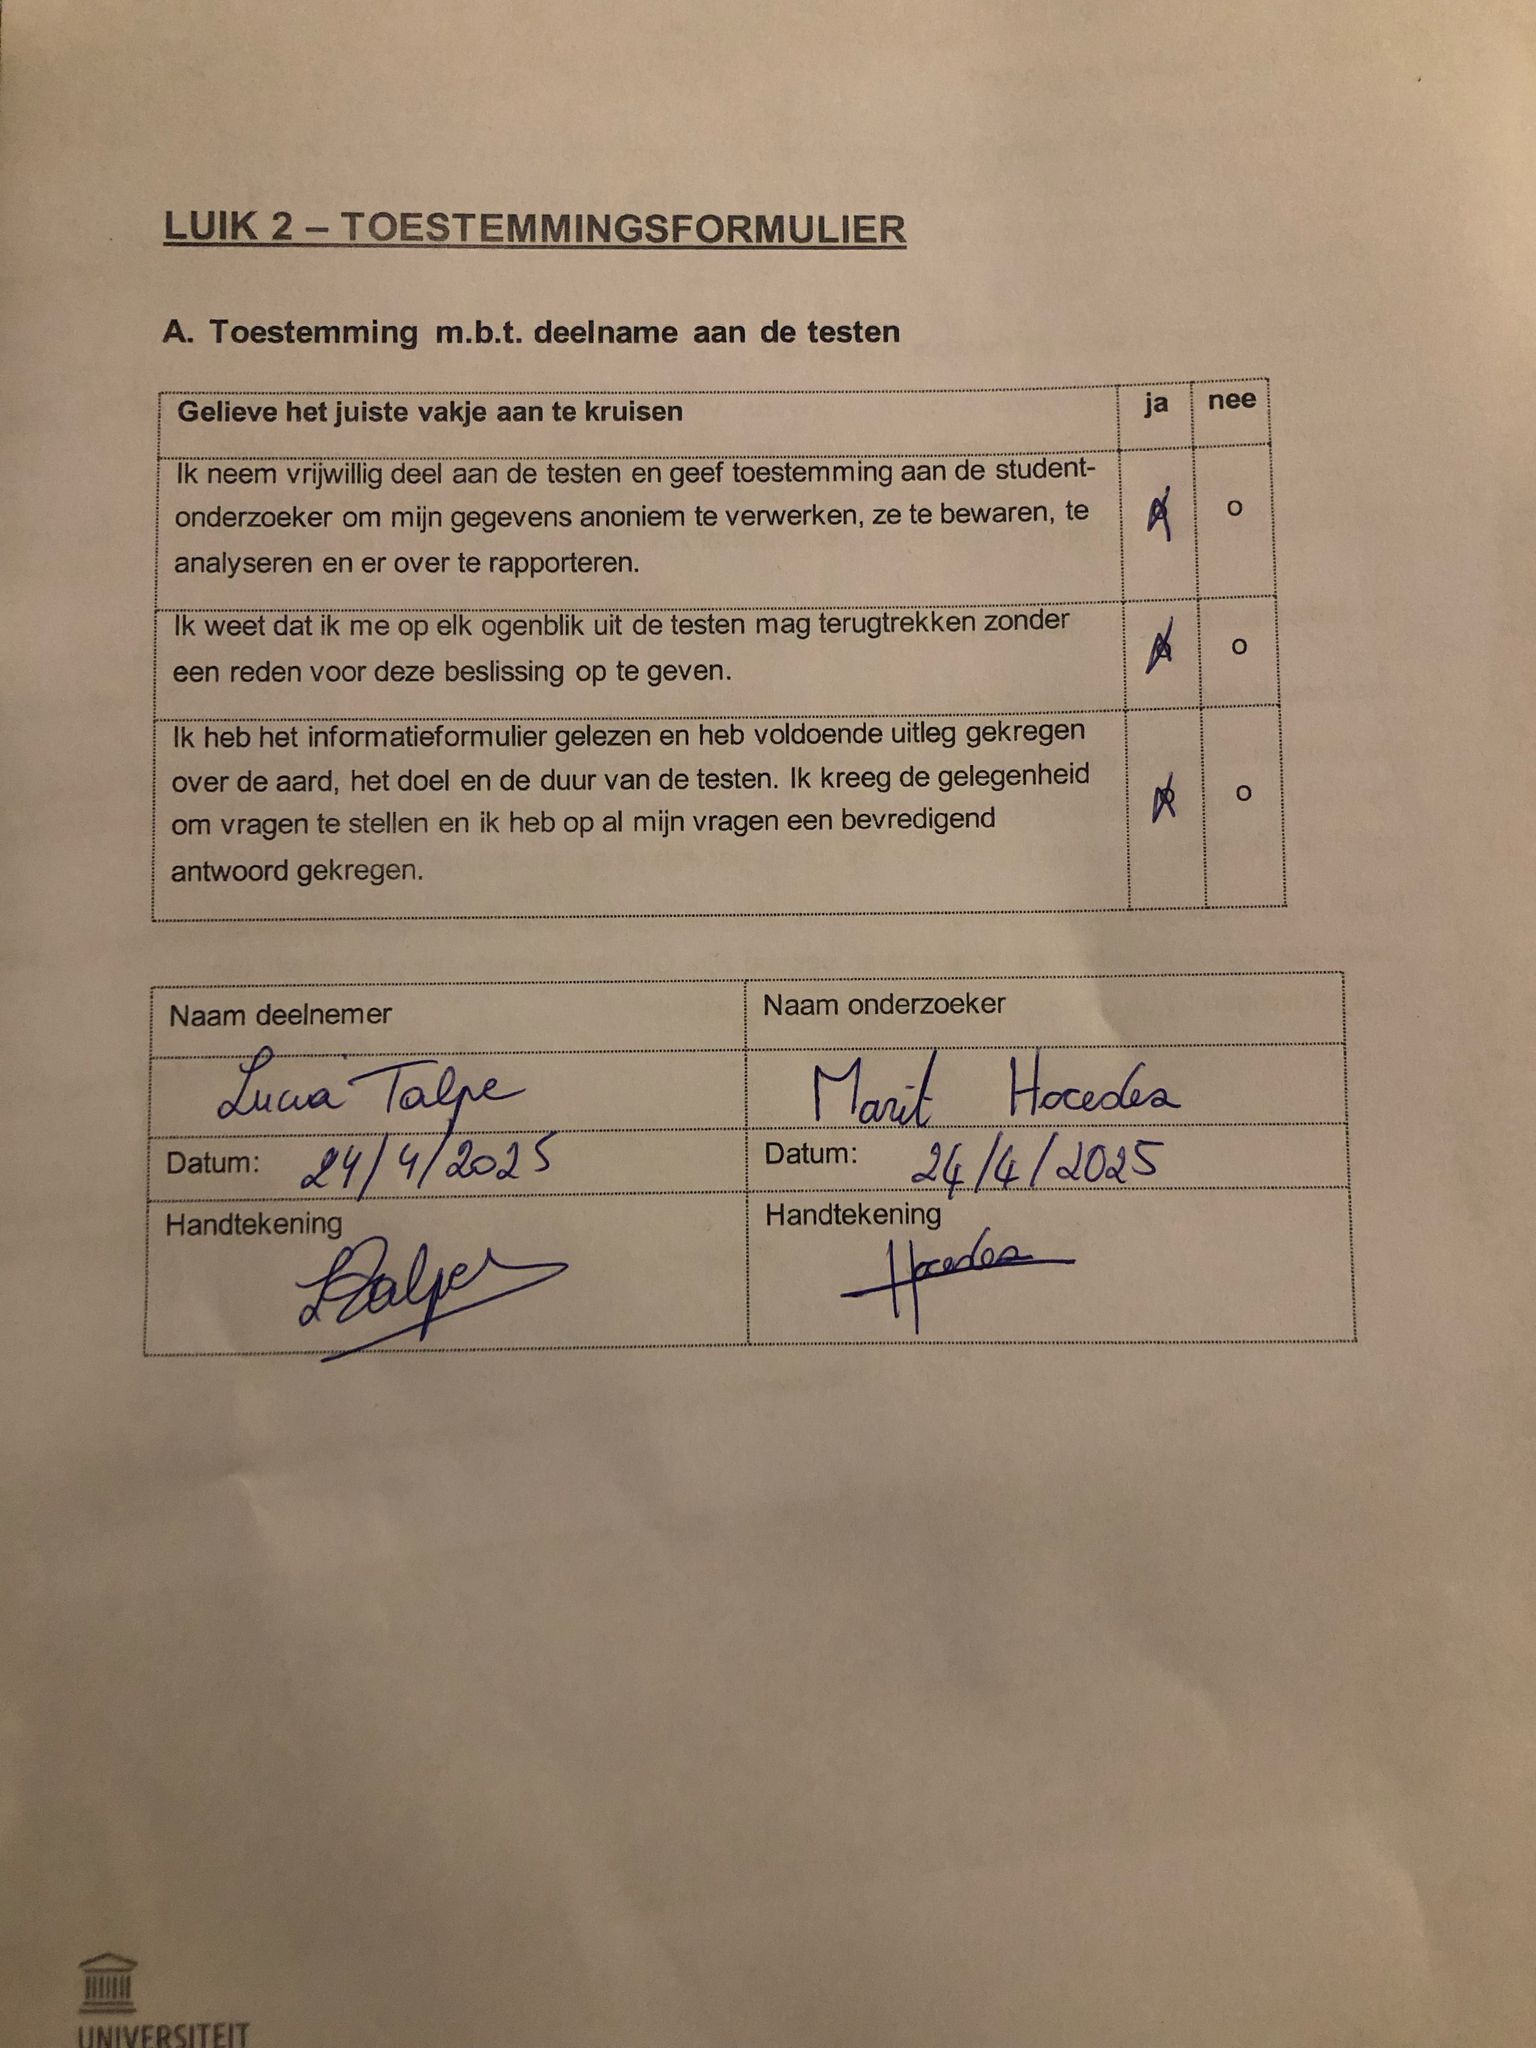 LUIK 2 – TOESTEMMINGSFORMULIER
A. Toestemming m.b.t. deelname aan de testen
Gelieve het juiste vakje aan te kruisen ja nee
Ik neem vrijwillig deel aan de testen en geef toestemming aan de student-
onderzoeker om mijn gegevens anoniem te verwerken, ze te bewaren, te
analyseren en er over te rapporteren.
o
Ik weet dat ik me op elk ogenblik uit de testen mag terugtrekken zonder
een reden voor deze beslissing op te geven.
o
Ik heb het informatieformulier gelezen en heb voldoende uitleg gekregen
over de aard, het doel en de duur van de testen. Ik kreeg de gelegenheid
om vragen te stellen en ik heb op al mijn vragen een bevredigend
antwoord gekregen.
o
Naam deelnemer Naam onderzoeker
Lucia Talpe Marit Hocedez
Datum: 24/4/2025 Datum: 24/4/2025
Handtekening Handtekening
LTalpe Hocedez
UNIVERSITEIT